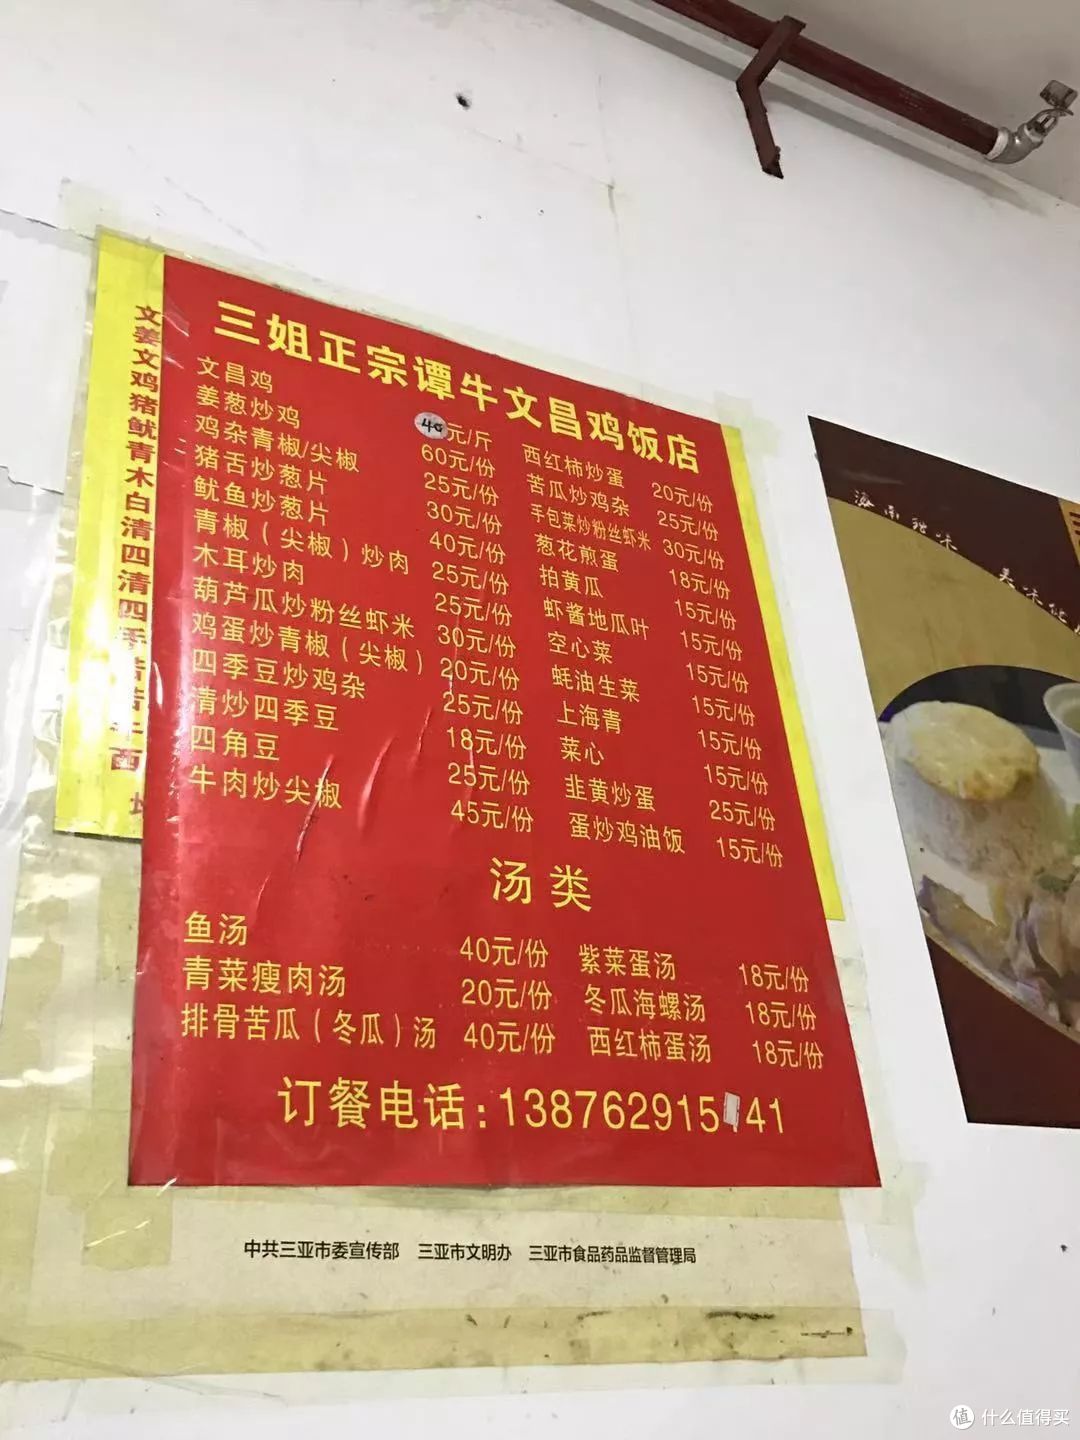 三姐正宗谭牛文昌鸡饭店
文昌鸡 40元/斤 西红柿炒蛋 20元/份
姜葱炒鸡 60元/份 苦瓜炒鸡杂 25元/份
鸡杂青椒/尖椒 25元/份 手包菜炒粉丝虾米 30元/份
猪舌炒葱片 30元/份 葱花煎蛋 18元/份
鱿鱼炒葱片 40元/份 拍黄瓜 15元/份
青椒（尖椒）炒肉 25元/份 虾酱地瓜叶 15元/份
木耳炒肉 25元/份 空心菜 15元/份
葫芦瓜炒粉丝虾米 30元/份 蚝油生菜 15元/份
鸡蛋炒青椒（尖椒） 20元/份 上海青 15元/份
四季豆炒鸡杂 25元/份 菜心 15元/份
清炒四季豆 18元/份 韭黄炒蛋 25元/份
四角豆 25元/份 蛋炒鸡油饭 15元/份
牛肉炒尖椒 45元/份
汤类
鱼汤 40元/份 紫菜蛋汤 18元/份
青菜瘦肉汤 20元/份 冬瓜海螺汤 18元/份
排骨苦瓜（冬瓜）汤 40元/份 西红柿蛋汤 18元/份
订餐电话：13876291541
文姜文鸡猪鱿青木白清四清四手
中共三亚市委宣传部 三亚市文明办 三亚市食品药品监督管理局
值 什么值得买